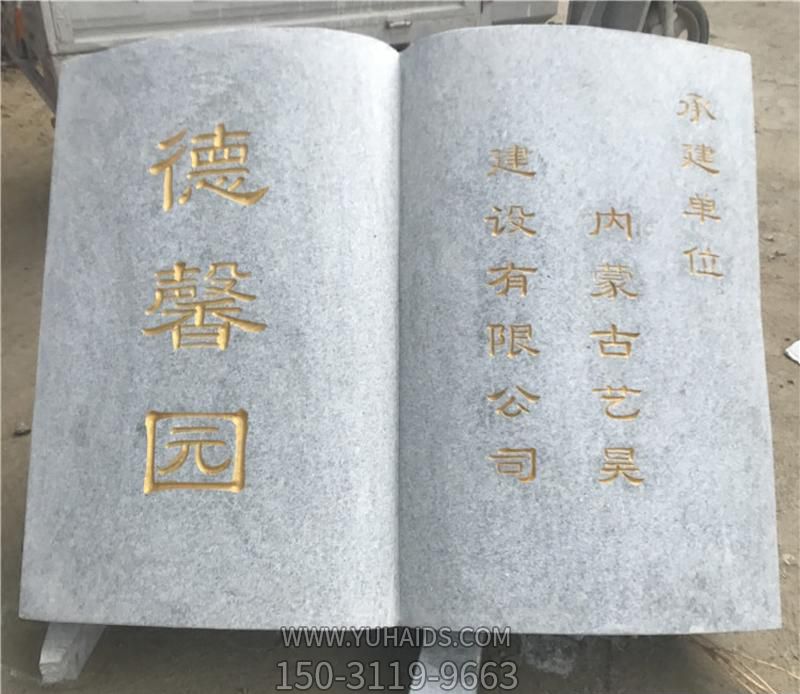 德馨园
承建单位
内蒙古艺昊
建设有限公司
WWW.YUHAIDS.COM
150-3119-9663